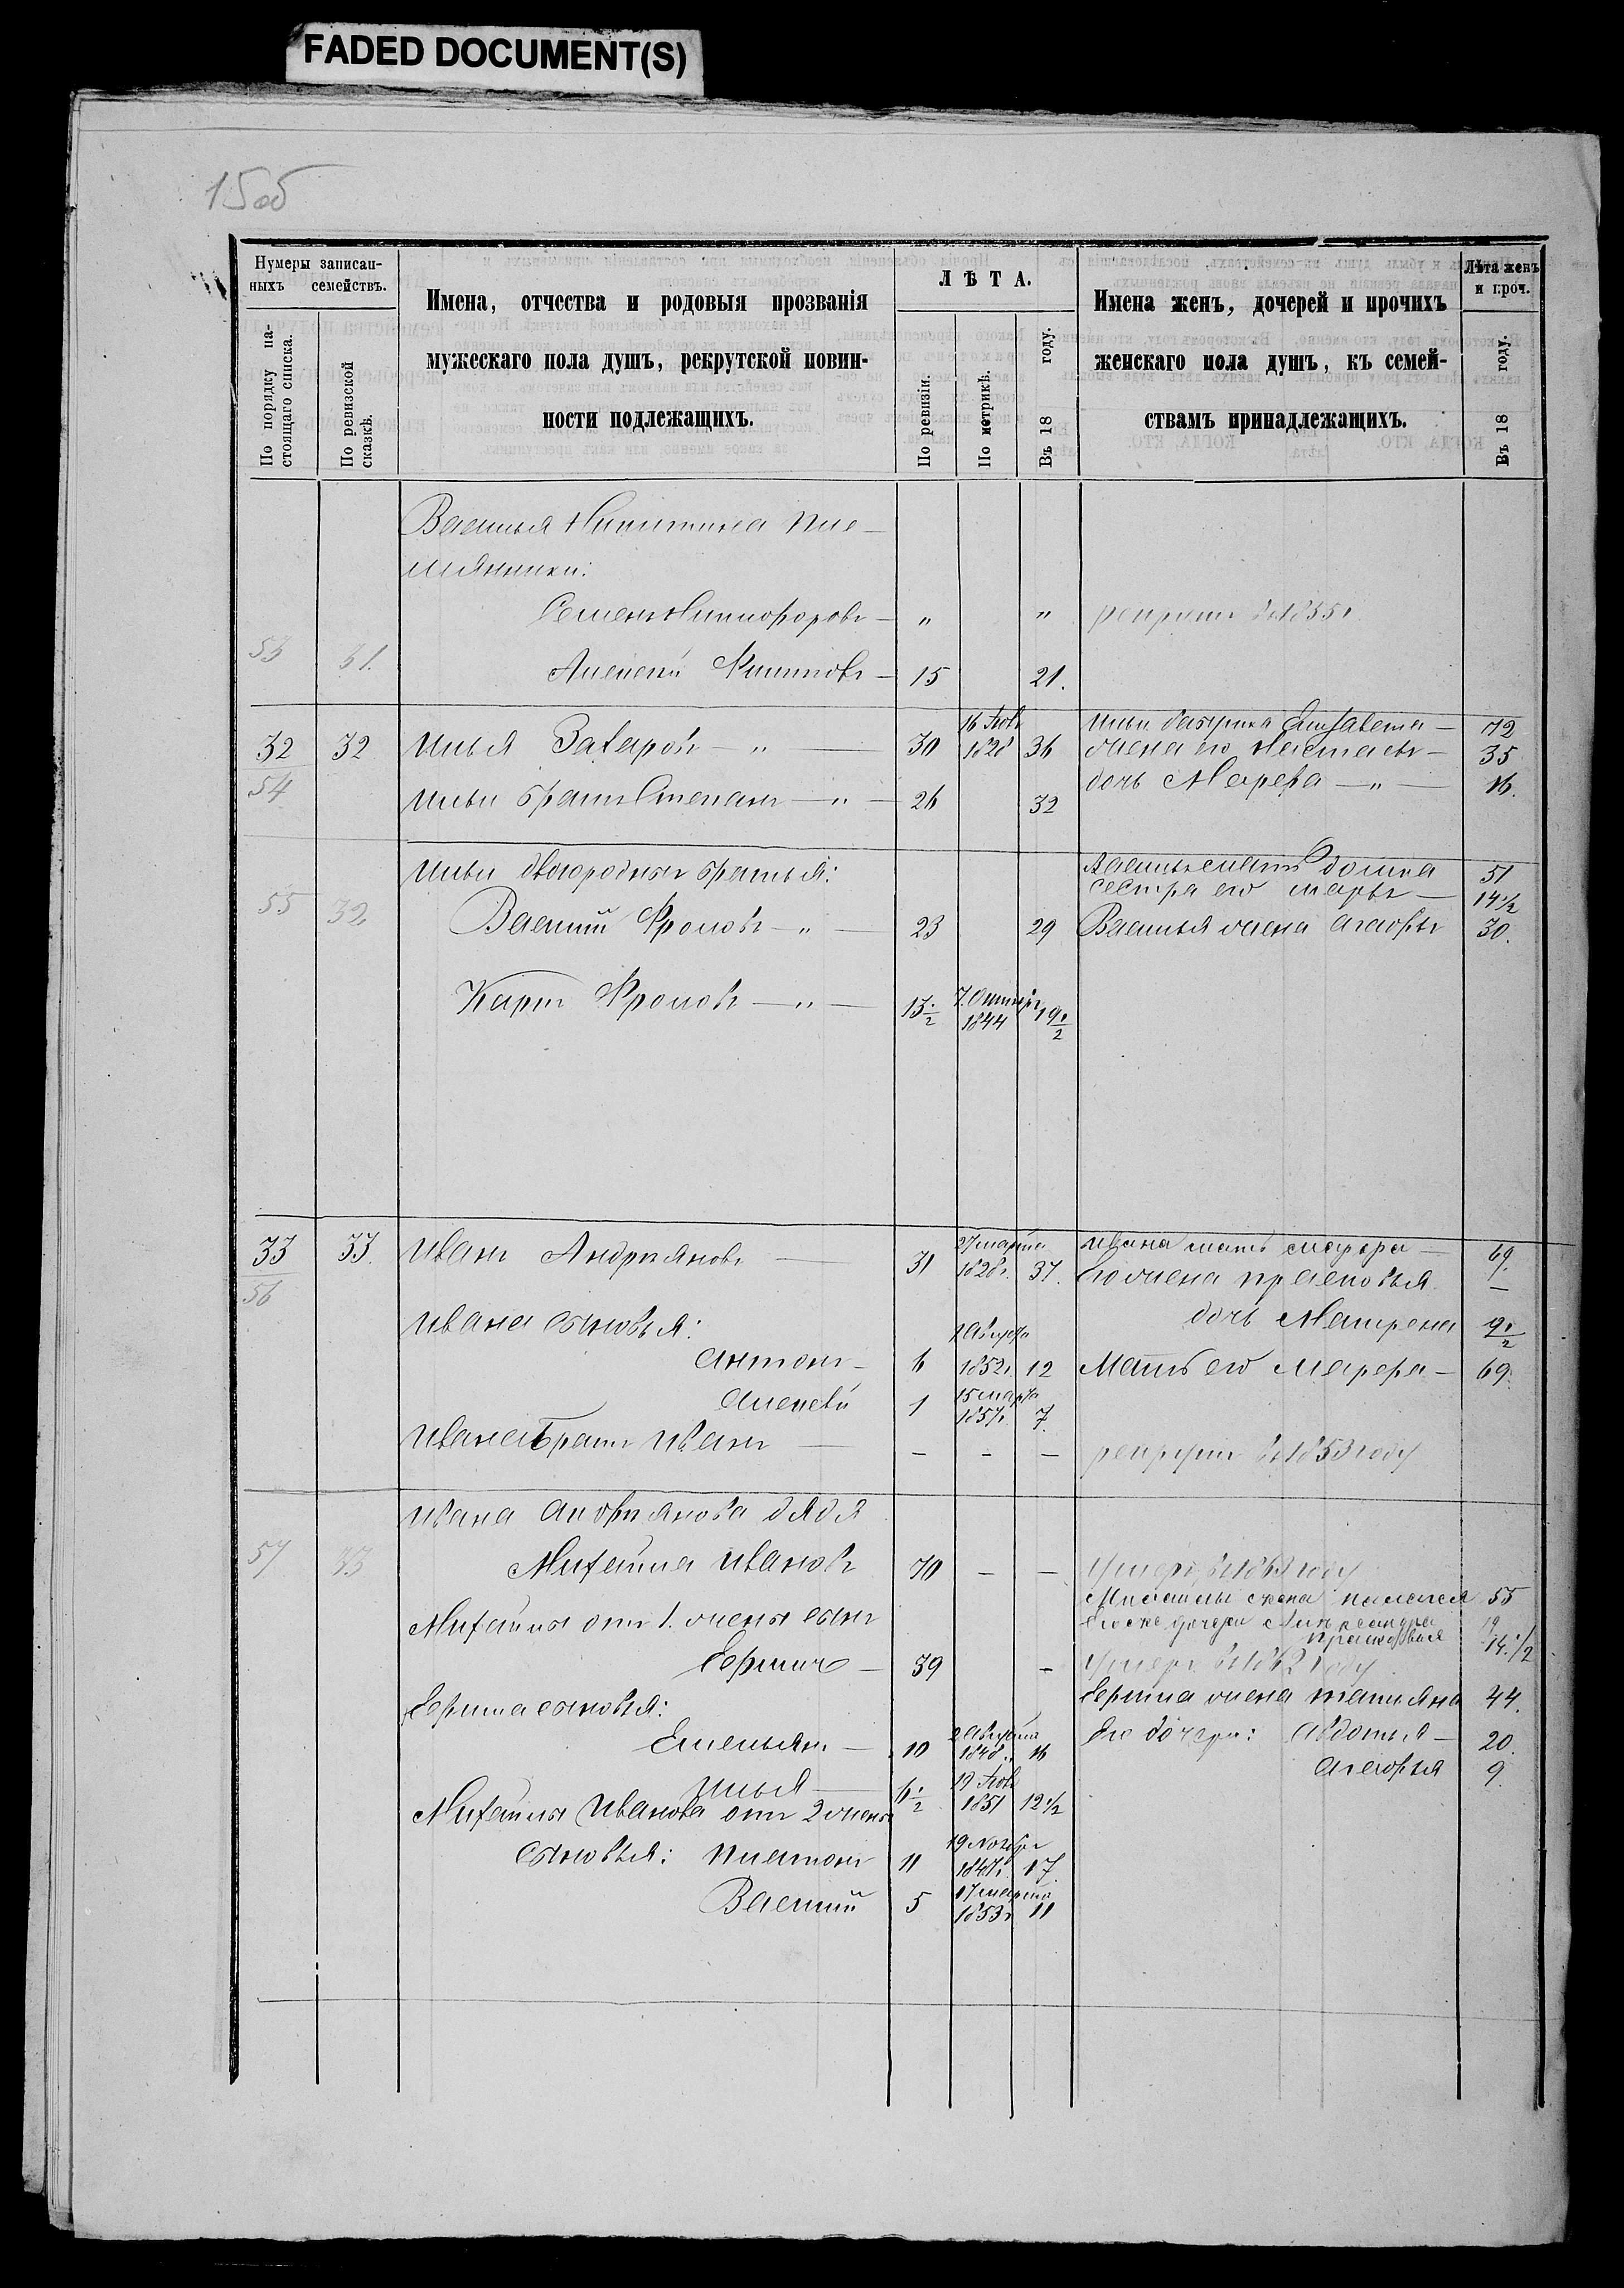 FADED DOCUMENT(S)
15об
Нумеры записан-
ныхъ семействъ.
По порядку на-
стоящаго списка.
По ревизской
сказкѣ.
Имена, отчества и родовыя прозванія
мужескаго пола душъ, рекрутской повин-
ности подлежащихъ.
ЛѢТА.
По ревизіи.
По метрикѣ.
Въ 18 году.
Имена женъ, дочерей и прочихъ
женскаго пола душъ, къ семей-
ствамъ принадлежащихъ.
Лѣта женъ
и проч.
Въ 18 году.
Василья Никитина пле-
мянники:
Семенъ Никифоровъ — " " рекрутъ въ 1855 г.
53 31. Алексѣй Филиповъ — 15 21.
32 32 Илья Захаровъ " — 30 1828 36
Ильи бабушка Елизавета — 72
жена его Настасья — 35
54 Ильи братъ Степанъ — " — 26 32
дочь Марфа — " — 16.
Ильи двоюродные братья:
Василья мать Домна 51
сестра его Марья — 14 1/2
55 32 Василій Фроловъ — " — 23 29 Василья жена Агафья 30.
Карпъ Фроловъ — " — 13 1/2 7 Октября 1844 19 1/2
33 33. Иванъ Андрияновъ — 31 27 марта 1828 г. 37.
Ивана мать Марфа — 69.
его жена Прасковья —
56
Ивана сыновья: дочь Матрена 9 1/2
Антонъ — 6 Августа 1852 г. 12 Мать его Марфа — 69.
Алексѣй 1 15 марта 1857 г. 7.
Ивана братъ Иванъ — — — — рекрутъ въ 1853 году
Ивана Андриянова дядя
57 33 Михайла Ивановъ 70 — — Умеръ въ году
Михайлы жена Пелагея 55
Михайлы отъ 1. жены сынъ
его же дочери Александра 19
Прасковья 14 1/2
Ефимъ — 39 — Умеръ въ 1862 году
Ефима сыновья: Ефима жена Татьяна 44.
Емельянъ — 10 Августа 1848 16 Его дочери: Авдотья — 20.
Агафья 9.
Илья — 6 1/2 19 1851 12 1/2
Михайлы Иванова отъ 2 жены
сыновья: Платонъ 11 19 Ноября 1847 г. 17.
Василій 5 17 марта 1853 г. 11